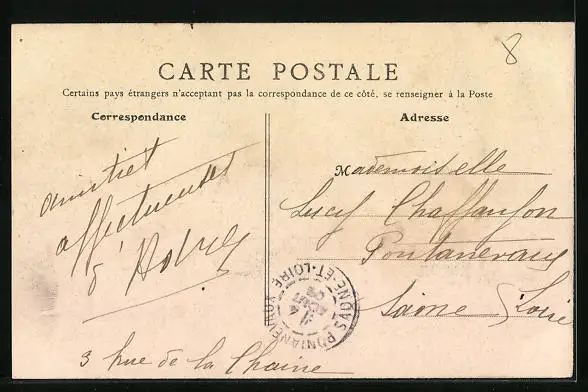 8
CARTE POSTALE
Certains pays étrangers n'acceptant pas la correspondance de ce côté, se renseigner à la Poste
Correspondance
Adresse
amitiet
affectueuses
d'
Mademoiselle
Lucy Chaffanjon
Pontanevaux
Saone & Loire
PONTANEVAUX
SAONE-ET-LOIRE
3 rue de la Chaine